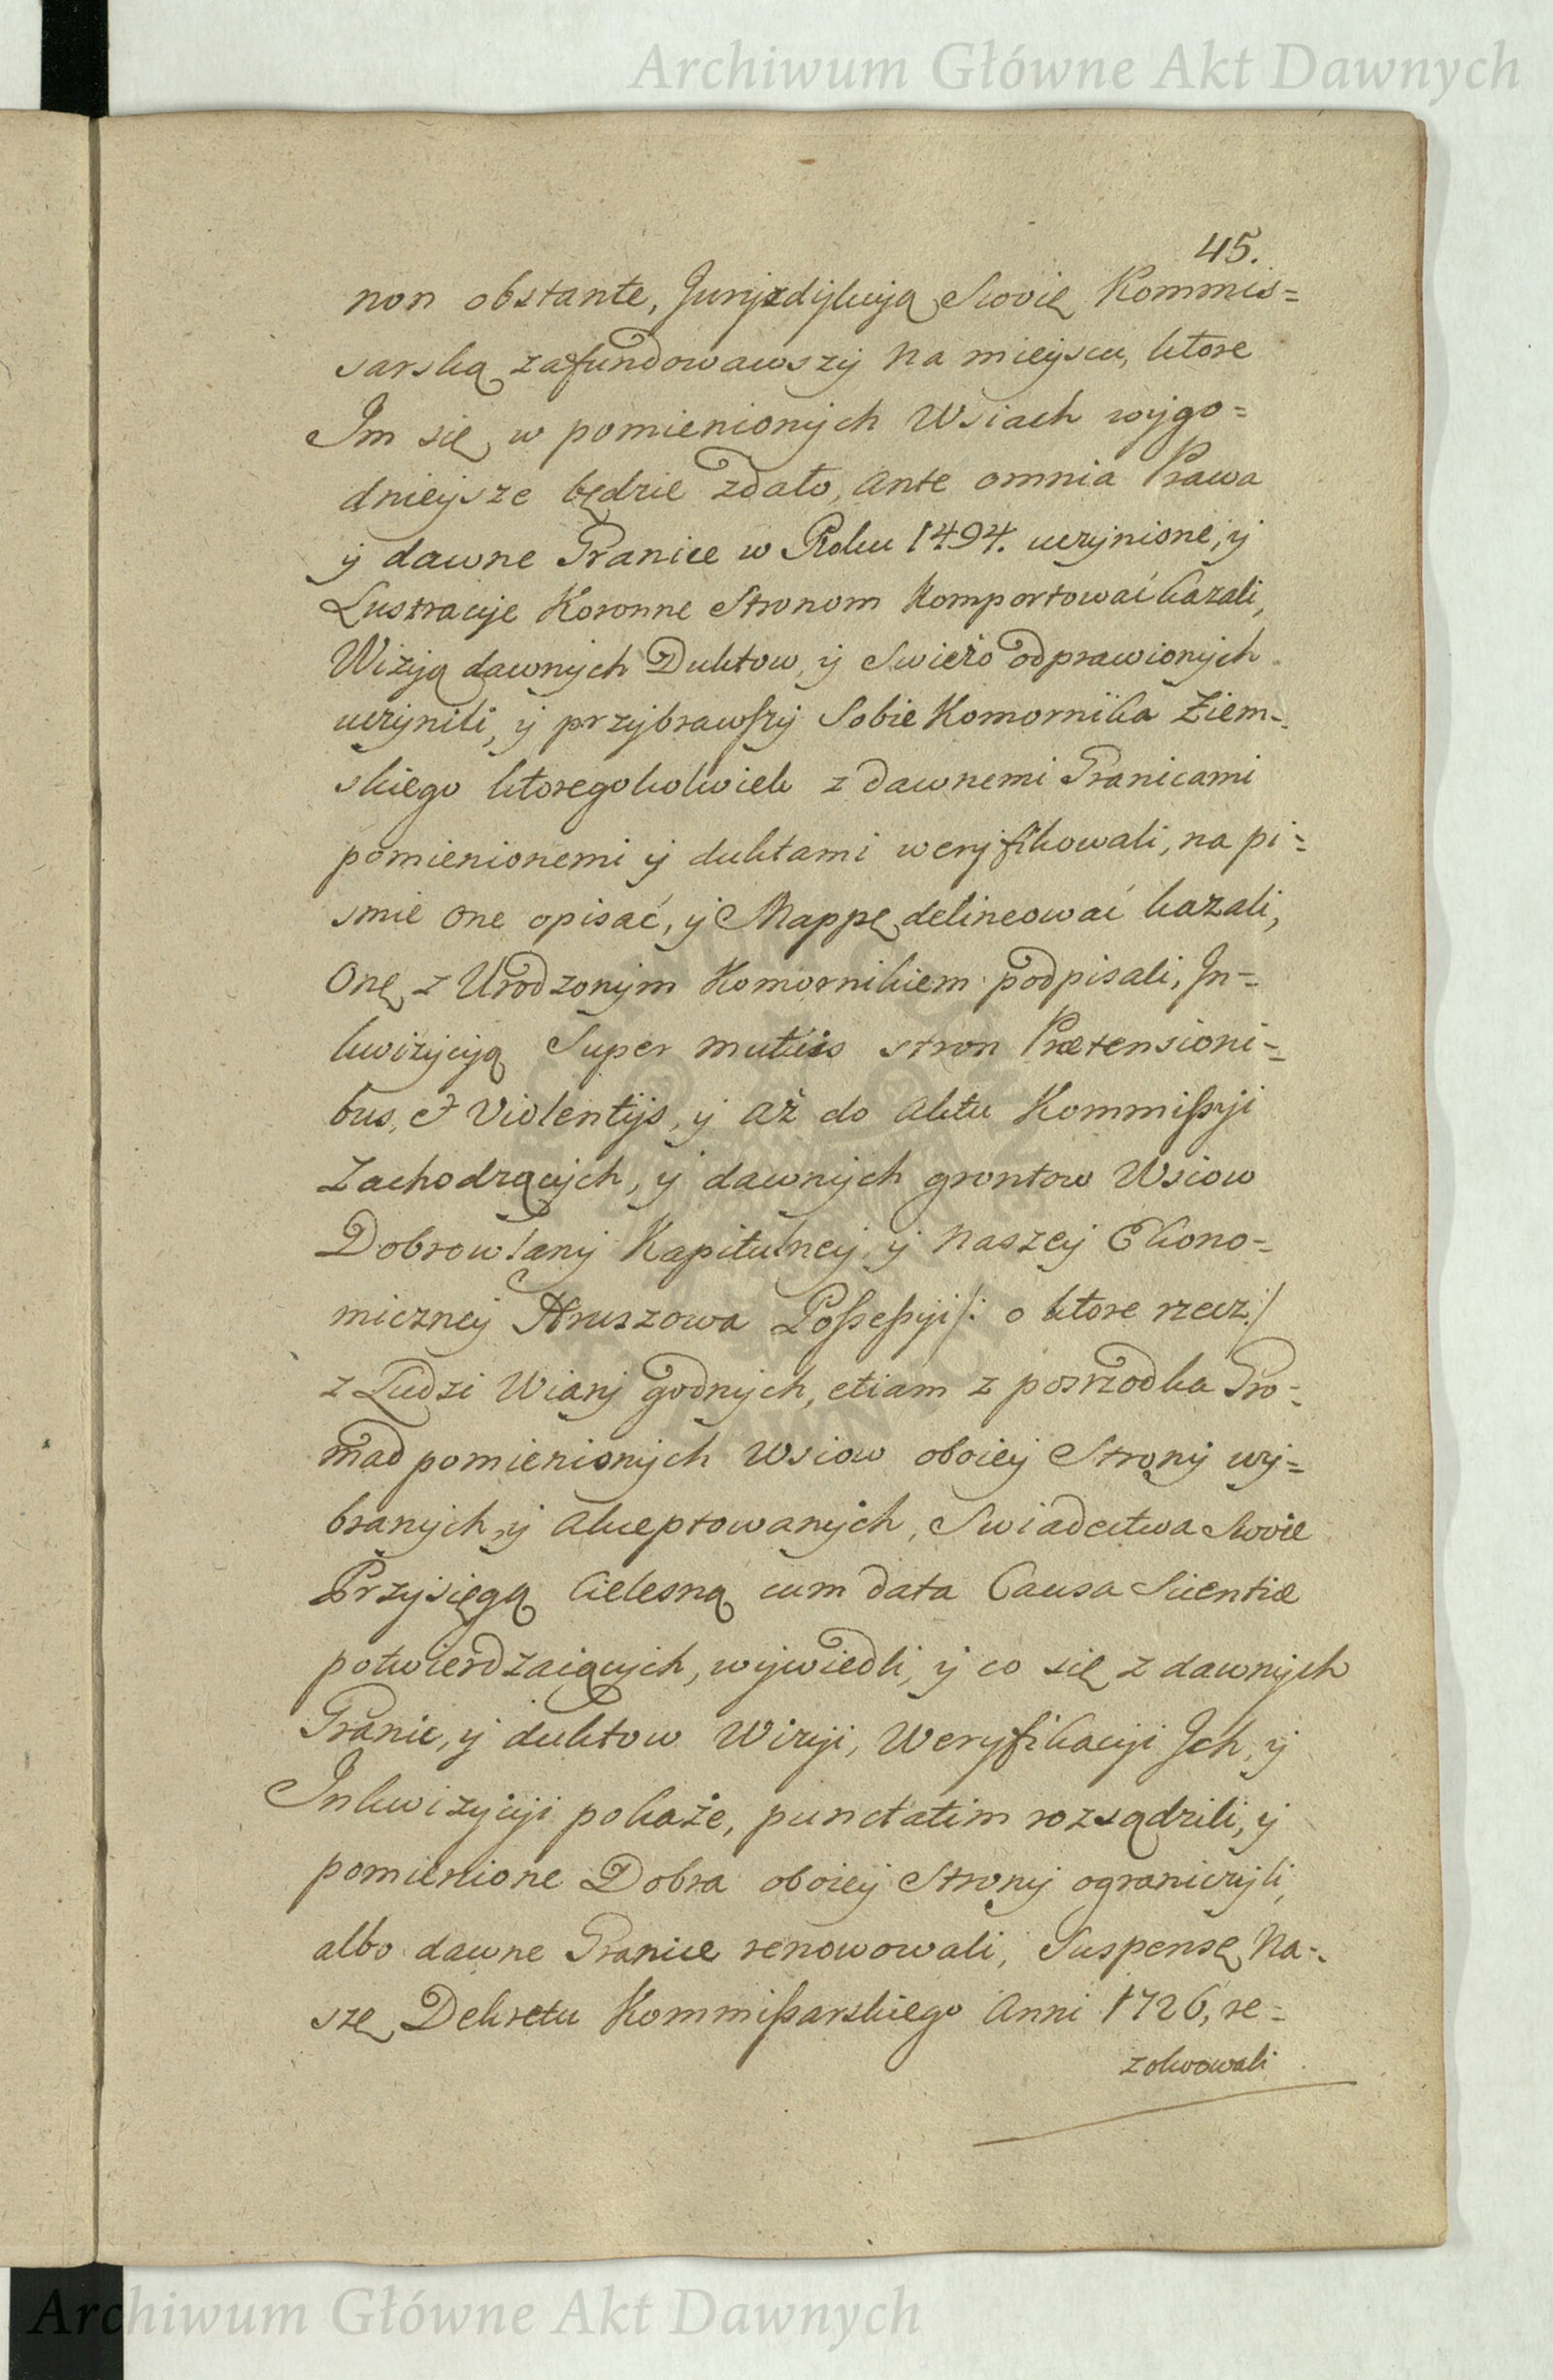 Archiwum Główne Akt Dawnych
45.
non obstante, Juryzdykcyą Swoię Kommis=
sarską zafundowawszy na mieyscu, ktore
Im się w pomienionych Wsiach wygo=
dnieysze będzie zdało, ante omnia Prawa
y dawne Granice w Roku 1494. uczynione, y
Lustracye Koronne Stronom Komportować kazali,
Wizyą dawnych Duktow, y Swieżo odprawionych
uczynili, y przybrawszy Sobie Komornika Ziem=
skiego ktoregokolwiek z dawnemi Granicami
pomienionemi y duktami weryfikowali, na pi=
smie one opisać, y Mappę delineować kazali,
Onę z Urodzonym Komornikiem podpisali, In=
kwizycyą Super mutuis stron Prætensioni=
bus, et Violentijs, y aż do aktu Kommissyi
Zachodzących, y dawnych grontow Wsiow
Dobrowlany Kapitulney y Naszey Ekono=
miczney Hruszowa Possessyi /: o ktore rzecz :/
z Ludzi Wiary godnych, etiam z posrzodka Gro=
mad pomienionych Wsiow oboiey Strony wy=
branych, y akceptowanych, Swiadectwa Swoie
Przysięgą Cielesną cum data Causa Scientiæ
potwierdzaiących, wywiedli, y co się z dawnych
Granic, y duktow Wizyi, Weryfikacyi Ich, y
Inkwizycyi pokaże, punctatim rozsądzili, y
pomienione Dobra oboiey Strony ograniczyli,
albo dawne Granice renowowali, Suspensę Na=
szę Dekretu Kommissarskiego Anni 1726, re=
zolwowali
Archiwum Główne Akt Dawnych